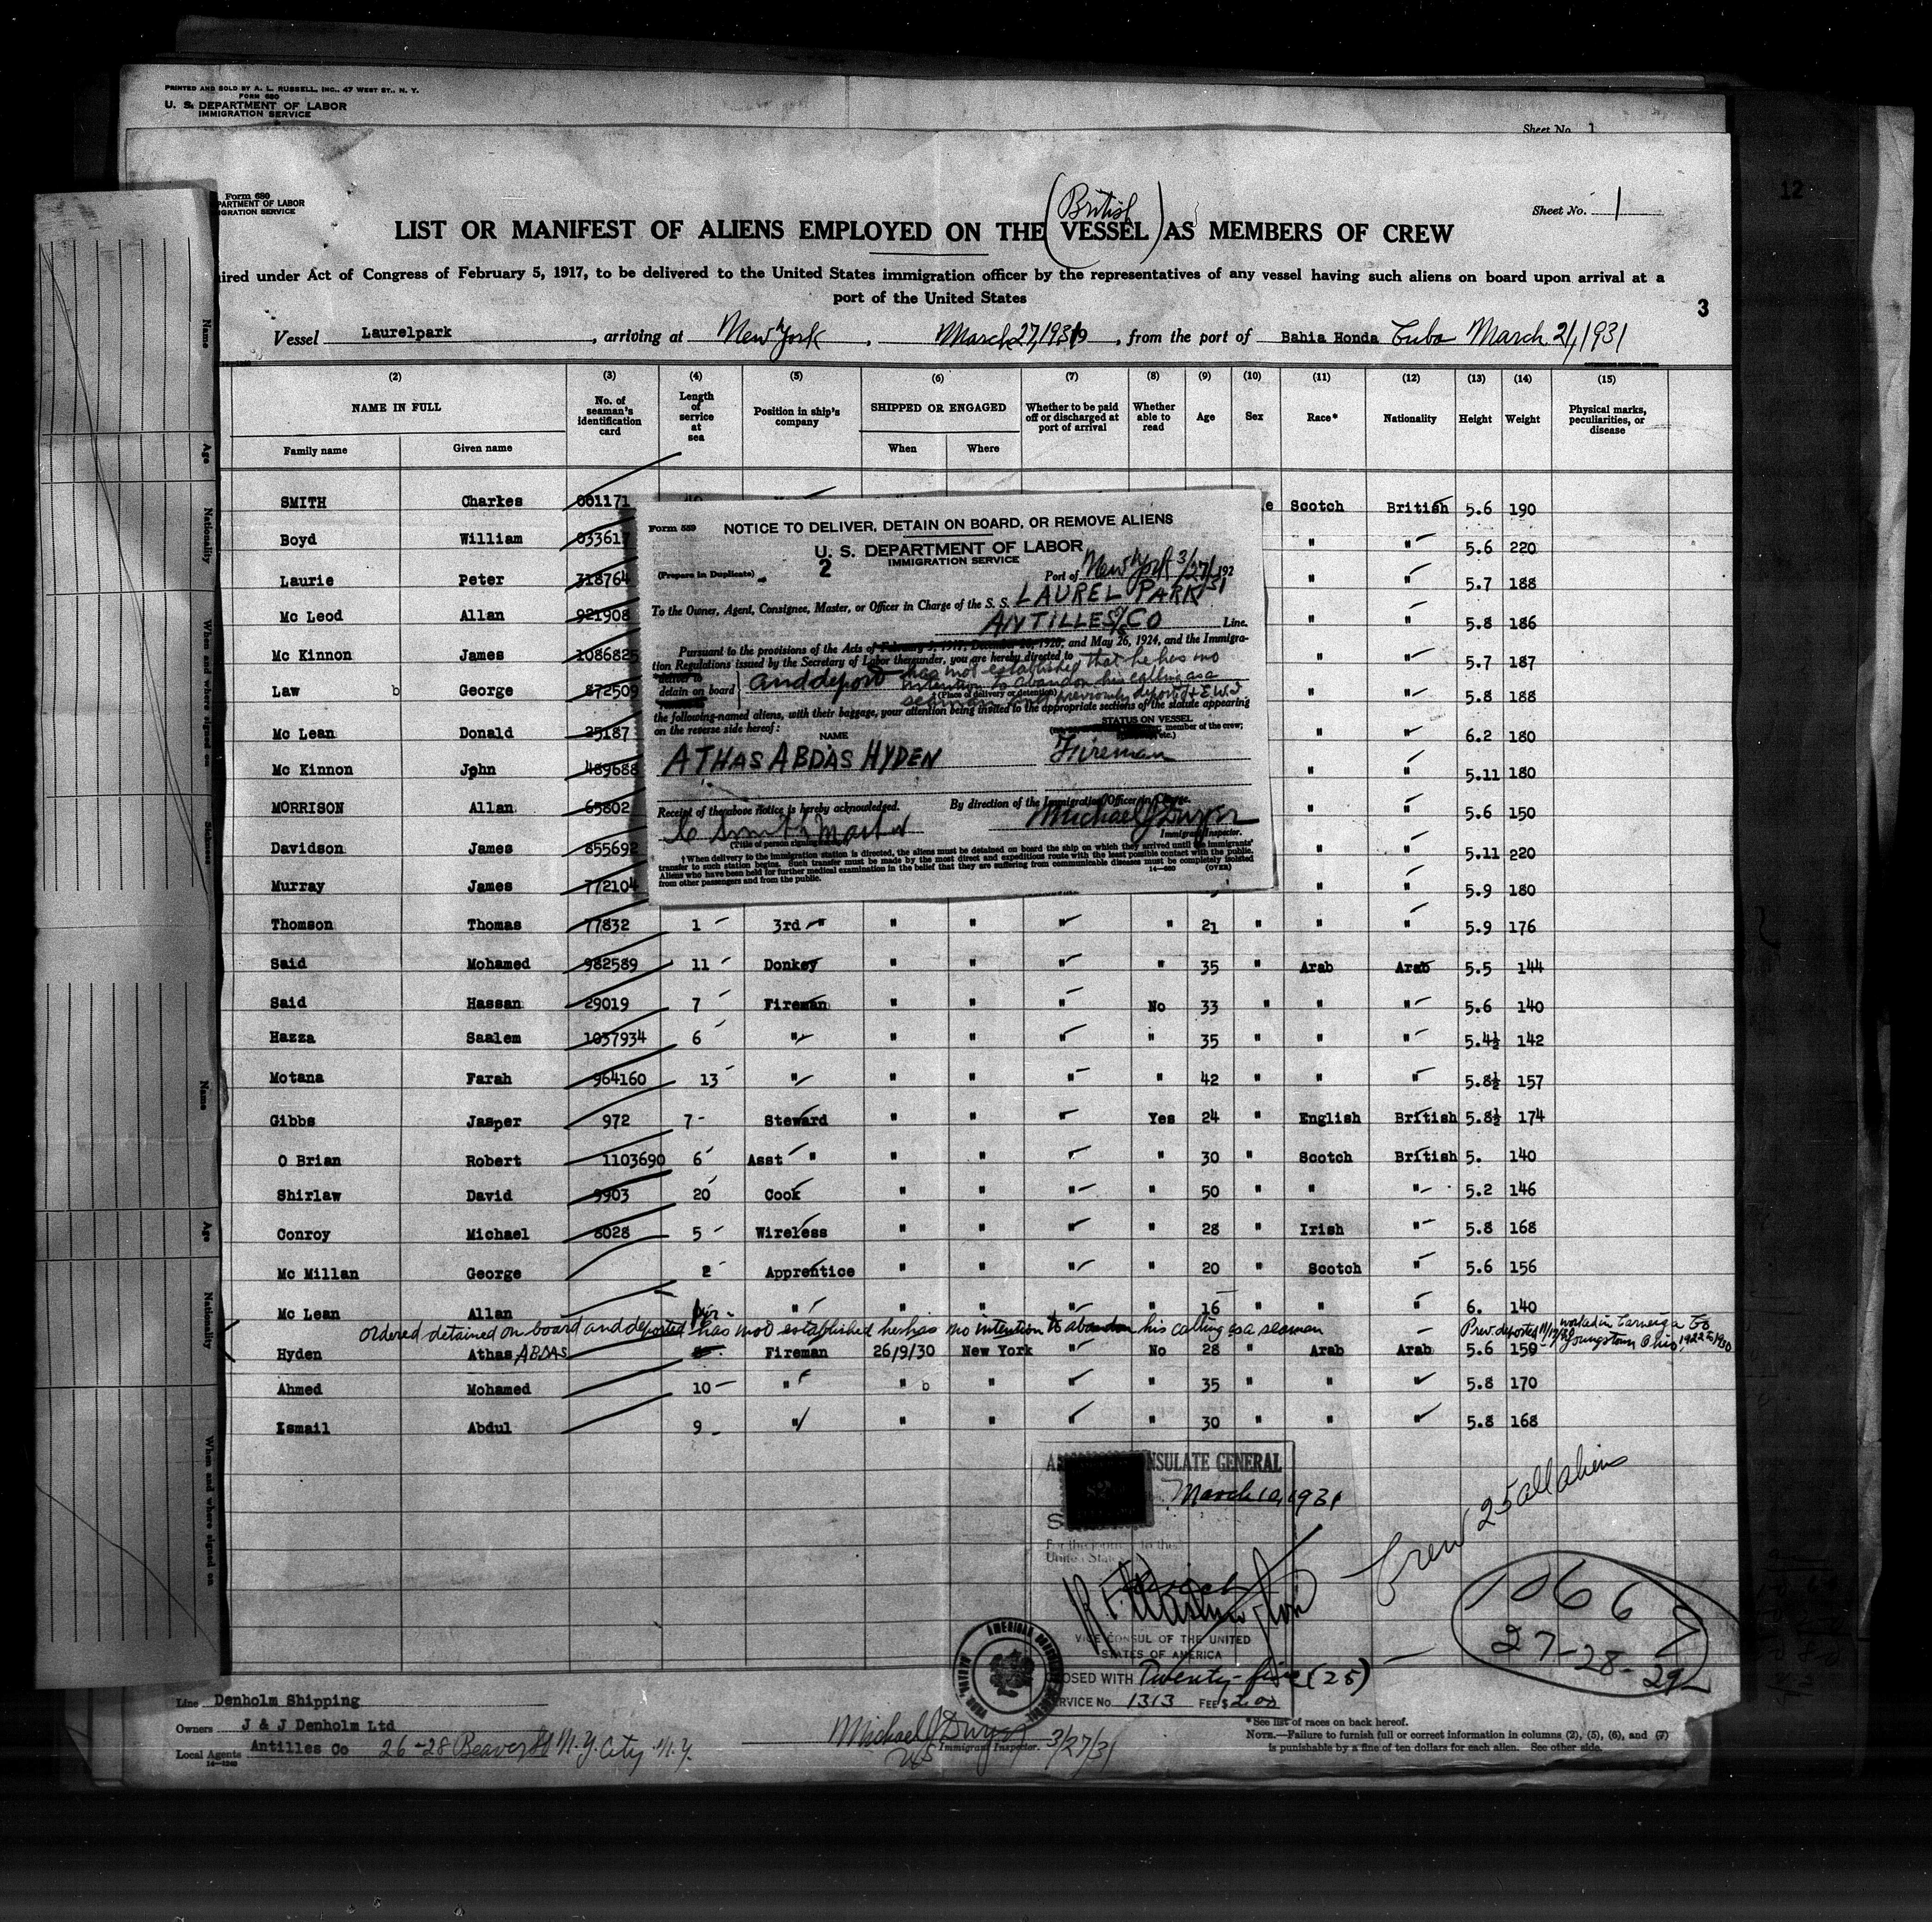 PRINTED AND SOLD BY A. L. RUSSELL, INC., 47 WEST ST., N. Y.
FORM 680
U. S. DEPARTMENT OF LABOR
IMMIGRATION SERVICE
Sheet No. 1
Form 680
PARTMENT OF LABOR
IGRATION SERVICE
Sheet No. 1
12
(British
LIST OR MANIFEST OF ALIENS EMPLOYED ON THE VESSEL) AS MEMBERS OF CREW
ired under Act of Congress of February 5, 1917, to be delivered to the United States immigration officer by the representatives of any vessel having such aliens on board upon arrival at a
port of the United States
3
Vessel Laurelpark, arriving at New York, March 27, 1931 19, from the port of Bahia Honda Cuba March 21, 1931
(2) (3) (4) (5) (6) (7) (8) (9) (10) (11) (12) (13) (14) (15)
NAME IN FULL
Family name Given name
No. of seaman's identification card
Length of service at sea
Position in ship's company
SHIPPED OR ENGAGED
When Where
Whether to be paid off or discharged at port of arrival
Whether able to read
Age Sex Race* Nationality Height Weight
Physical marks, peculiarities, or disease
SMITH Charkes 001171 e Scotch British 5.6 190
Boyd William 033617 " " 5.6 220
Laurie Peter 318764 " " 5.7 188
Mc Leod Allan 921908 " " 5.8 186
Mc Kinnon James 1086825 " " 5.7 187
Law b George 872509 " " 5.8 188
Mc Lean Donald 25187 " " 6.2 180
Mc Kinnon John 489688 " " 5.11 180
MORRISON Allan 65802 " " 5.6 150
Davidson James 855692 " " 5.11 220
Murray James 772104 " " 5.9 180
Form 559
NOTICE TO DELIVER, DETAIN ON BOARD, OR REMOVE ALIENS
U. S. DEPARTMENT OF LABOR
2 IMMIGRATION SERVICE
(Prepare in Duplicate)
Port of New York 3/27/31 192
To the Owner, Agent, Consignee, Master, or Officer in Charge of the S. S. LAUREL PARK
ANTILLES S/CO Line.
Pursuant to the provisions of the Acts of February 5, 1917, December 26, 1920, and May 26, 1924, and the Immigra-
tion Regulations issued by the Secretary of Labor thereunder, you are hereby directed to
deliver to
detain on board } and deport has not established that he has no
intention to abandon his calling as a
(Place of delivery or detention)
seaman and previously deported
the following-named aliens, with their baggage, your attention being invited to the appropriate sections of the statute appearing
on the reverse side hereof:
NAME
STATUS ON VESSEL
member of the crew;
etc.)
ATHAS ABDAS HYDEN Fireman
Receipt of the above notice is hereby acknowledged.
By direction of the Immigration Officer in Charge.
C Smith Master
(Title of person signing)
Michael J Dwyer
Immigrant Inspector.
† When delivery to the immigration station is directed, the aliens must be detained on board the ship on which they arrived until the immigrants'
transfer to such station begins. Such transfer must be made by the most direct and expeditious route with the least possible contact with the public.
Aliens who have been held for further medical examination in the belief that they are suffering from communicable diseases must be completely isolated
from other passengers and from the public.
(OVER)
Thomson Thomas 77832 1 3rd " " " " " 21 " " " 5.9 176
Said Mohamed 982589 11 Donkey " " " " 35 " Arab Arab 5.5 144
Said Hassan 29019 7 Fireman " " " No 33 " " " 5.6 140
Hazza Saalem 1037934 6 " " " " " 35 " " " 5.4½ 142
Motana Farah 964160 13 " " " " " 42 " " " 5.8½ 157
Gibbs Jasper 972 7 Steward " " " Yes 24 " English British 5.8½ 174
O Brian Robert 1103690 6 Asst " " " " " 30 " Scotch British 5. 140
Shirlaw David 9903 20 Cook " " " " 50 " " " 5.2 146
Conroy Michael 8028 5 Wireless " " " " 28 " Irish " 5.8 168
Mc Millan George 2 Apprentice " " " " 20 " Scotch " 5.6 156
Mc Lean Allan " " " " " 16 " " " 6. 140
Ordered detained on board and deported has not established he has no intention to abandon his calling as a seaman
Prev. deported worked in Carneiga Co
Youngstown Ohio, 1922 to 1930
Hyden Athas ABDAS Fireman 26/9/30 New York " No 28 " Arab Arab 5.6 150
Ahmed Mohamed 10 " " b " " 35 " " " 5.8 170
Ismail Abdul 9 " " " " 30 " " " 5.8 168
NSULATE GENERAL
March 10, 1931
For the journey to the
United States
VICE CONSUL OF THE UNITED
STATES OF AMERICA
OSED WITH Twenty-five (25)
ERVICE No. 1313 FEE $ 2.00
Crew 25 all aliens
1066
27-28-29
Line Denholm Shipping
Owners J & J Denholm Ltd
Local Agents Antilles Co 26-28 Beaver St N.Y. City N.Y.
Michael J Dwyer
US Immigrant Inspector. 3/27/31
* See list of races on back hereof.
NOTE.—Failure to furnish full or correct information in columns (2), (5), (6), and (7)
is punishable by a fine of ten dollars for each alien. See other side.
Name
Age
Nationality
When and where signed on
Name
Age
Nationality
When and where signed on